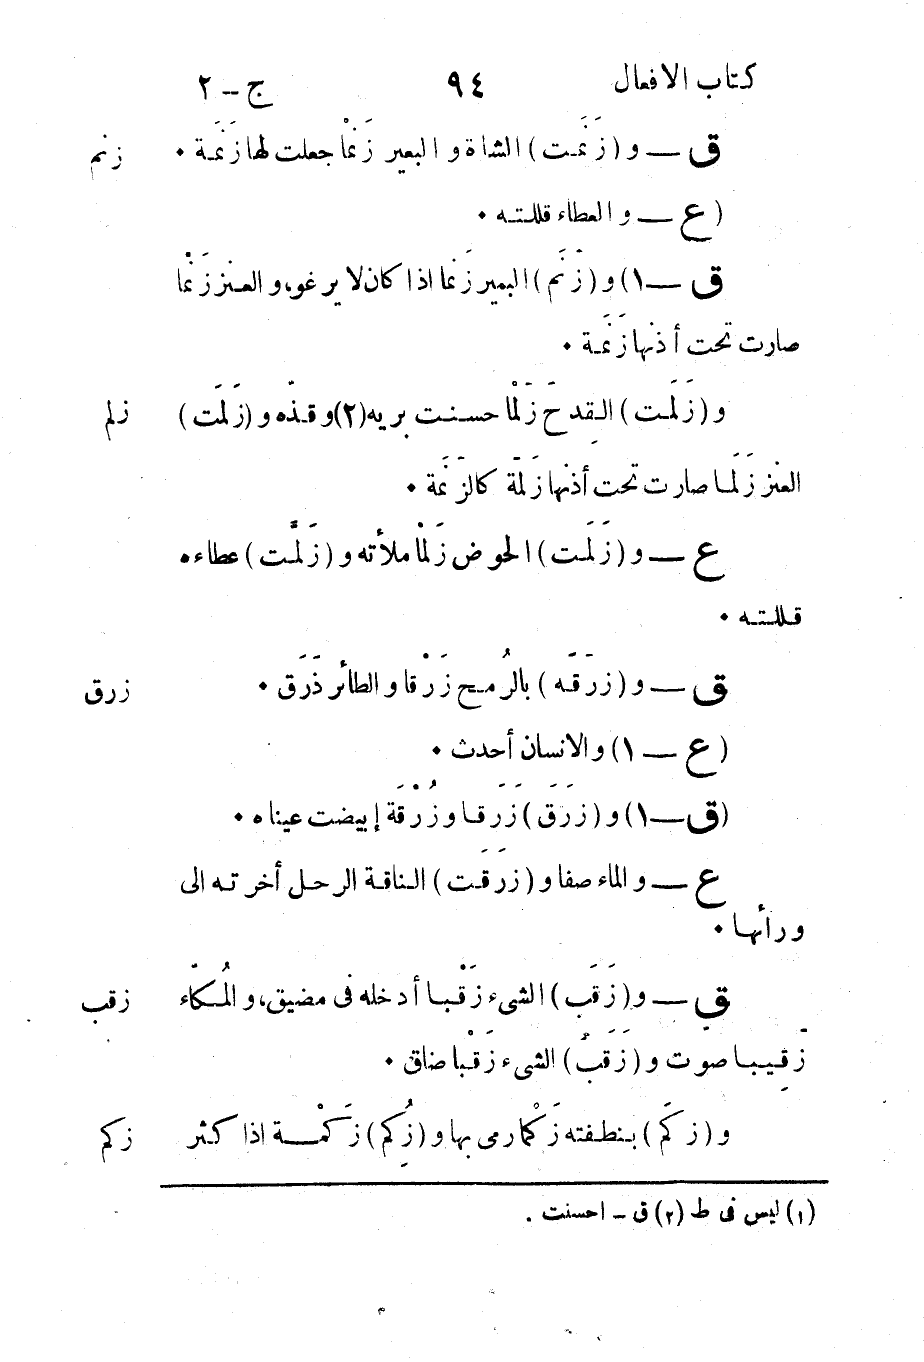 كتاب الافعال ٩٤ ج - ٢
ق — و (زَنَمَت) الشاة و البعير زَنْما جعلت لها زَنَمة • زنم
(ع — و العطاء قللته •
ق — ١) و (زَنِم) البعير زَنَما اذا كان لا يرغو، و العنز زَنَما
صارت تحت أذنها زَنَمة •
و (زَلَمت) القِدح زَلْما حسنت بريه (٢) و قذّه و (زَلَمَت) زلم
العنز زَلَما صارت تحت أذنها زَلَمَة كالزَّنَمة •
ع — و (زَلَمت) الحوض زَلْما ملأته و (زَلَّمت) عطاءه
قللته •
ق — و (زَرَقَه) بالرُمح زَرْقا و الطائر ذَرَق • زرق
(ع — ١) والانسان أحدث •
(ق — ١) و (زَرِق) زَرَقا و زُرْقَة إبيضت عيناه •
ع — و الماء صفا و (زَرَقت) الناقة الرحل أخرته الى
ورأئها •
ق — و (زَقَب) الشىء زَقْبا أدخله فى مضيق، و المُكّاء زقب
زَقِيبا صوت و (زَقُب) الشىء زَقْبا ضاق •
و (زكَم) بنطفته زَكْما رمى بها و (زُكِم) زَكْمة اذا كثر زكم
(١) ليس فى ط (٢) ق - احسنت .